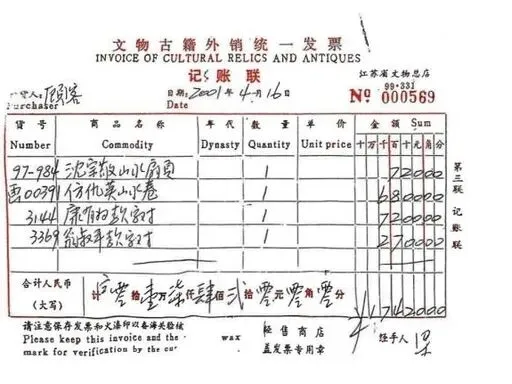 文物古籍外销统一发票
INVOICE OF CULTURAL RELICS AND ANTIQUES
记账联
江苏省文物总店
99·331
货人: 顾客
Purchaser
日期 2001年4月16日
Date
No 000569
货号 商品名称 年代 数量 单价 金额 Sum
Number Commodity Dynasty Quantity Unit price 十万千百十元角分
97-984 沈宗敬山水扇页 1 72000
画00391 仿仇英山水卷 1 680000
3144 康有为款字对 1 720000
3369 翁叔平款字对 1 270000
合计人民币
(大写)
计 零拾壹万柒仟肆佰贰拾零元零角零分 ¥1742000
第三联 记账联
请注意保存发票和火漆印以备海关验核
Please keep this invoice and the wax
mark for verification by the
经售商店
盖发票专用章
经手人 梁